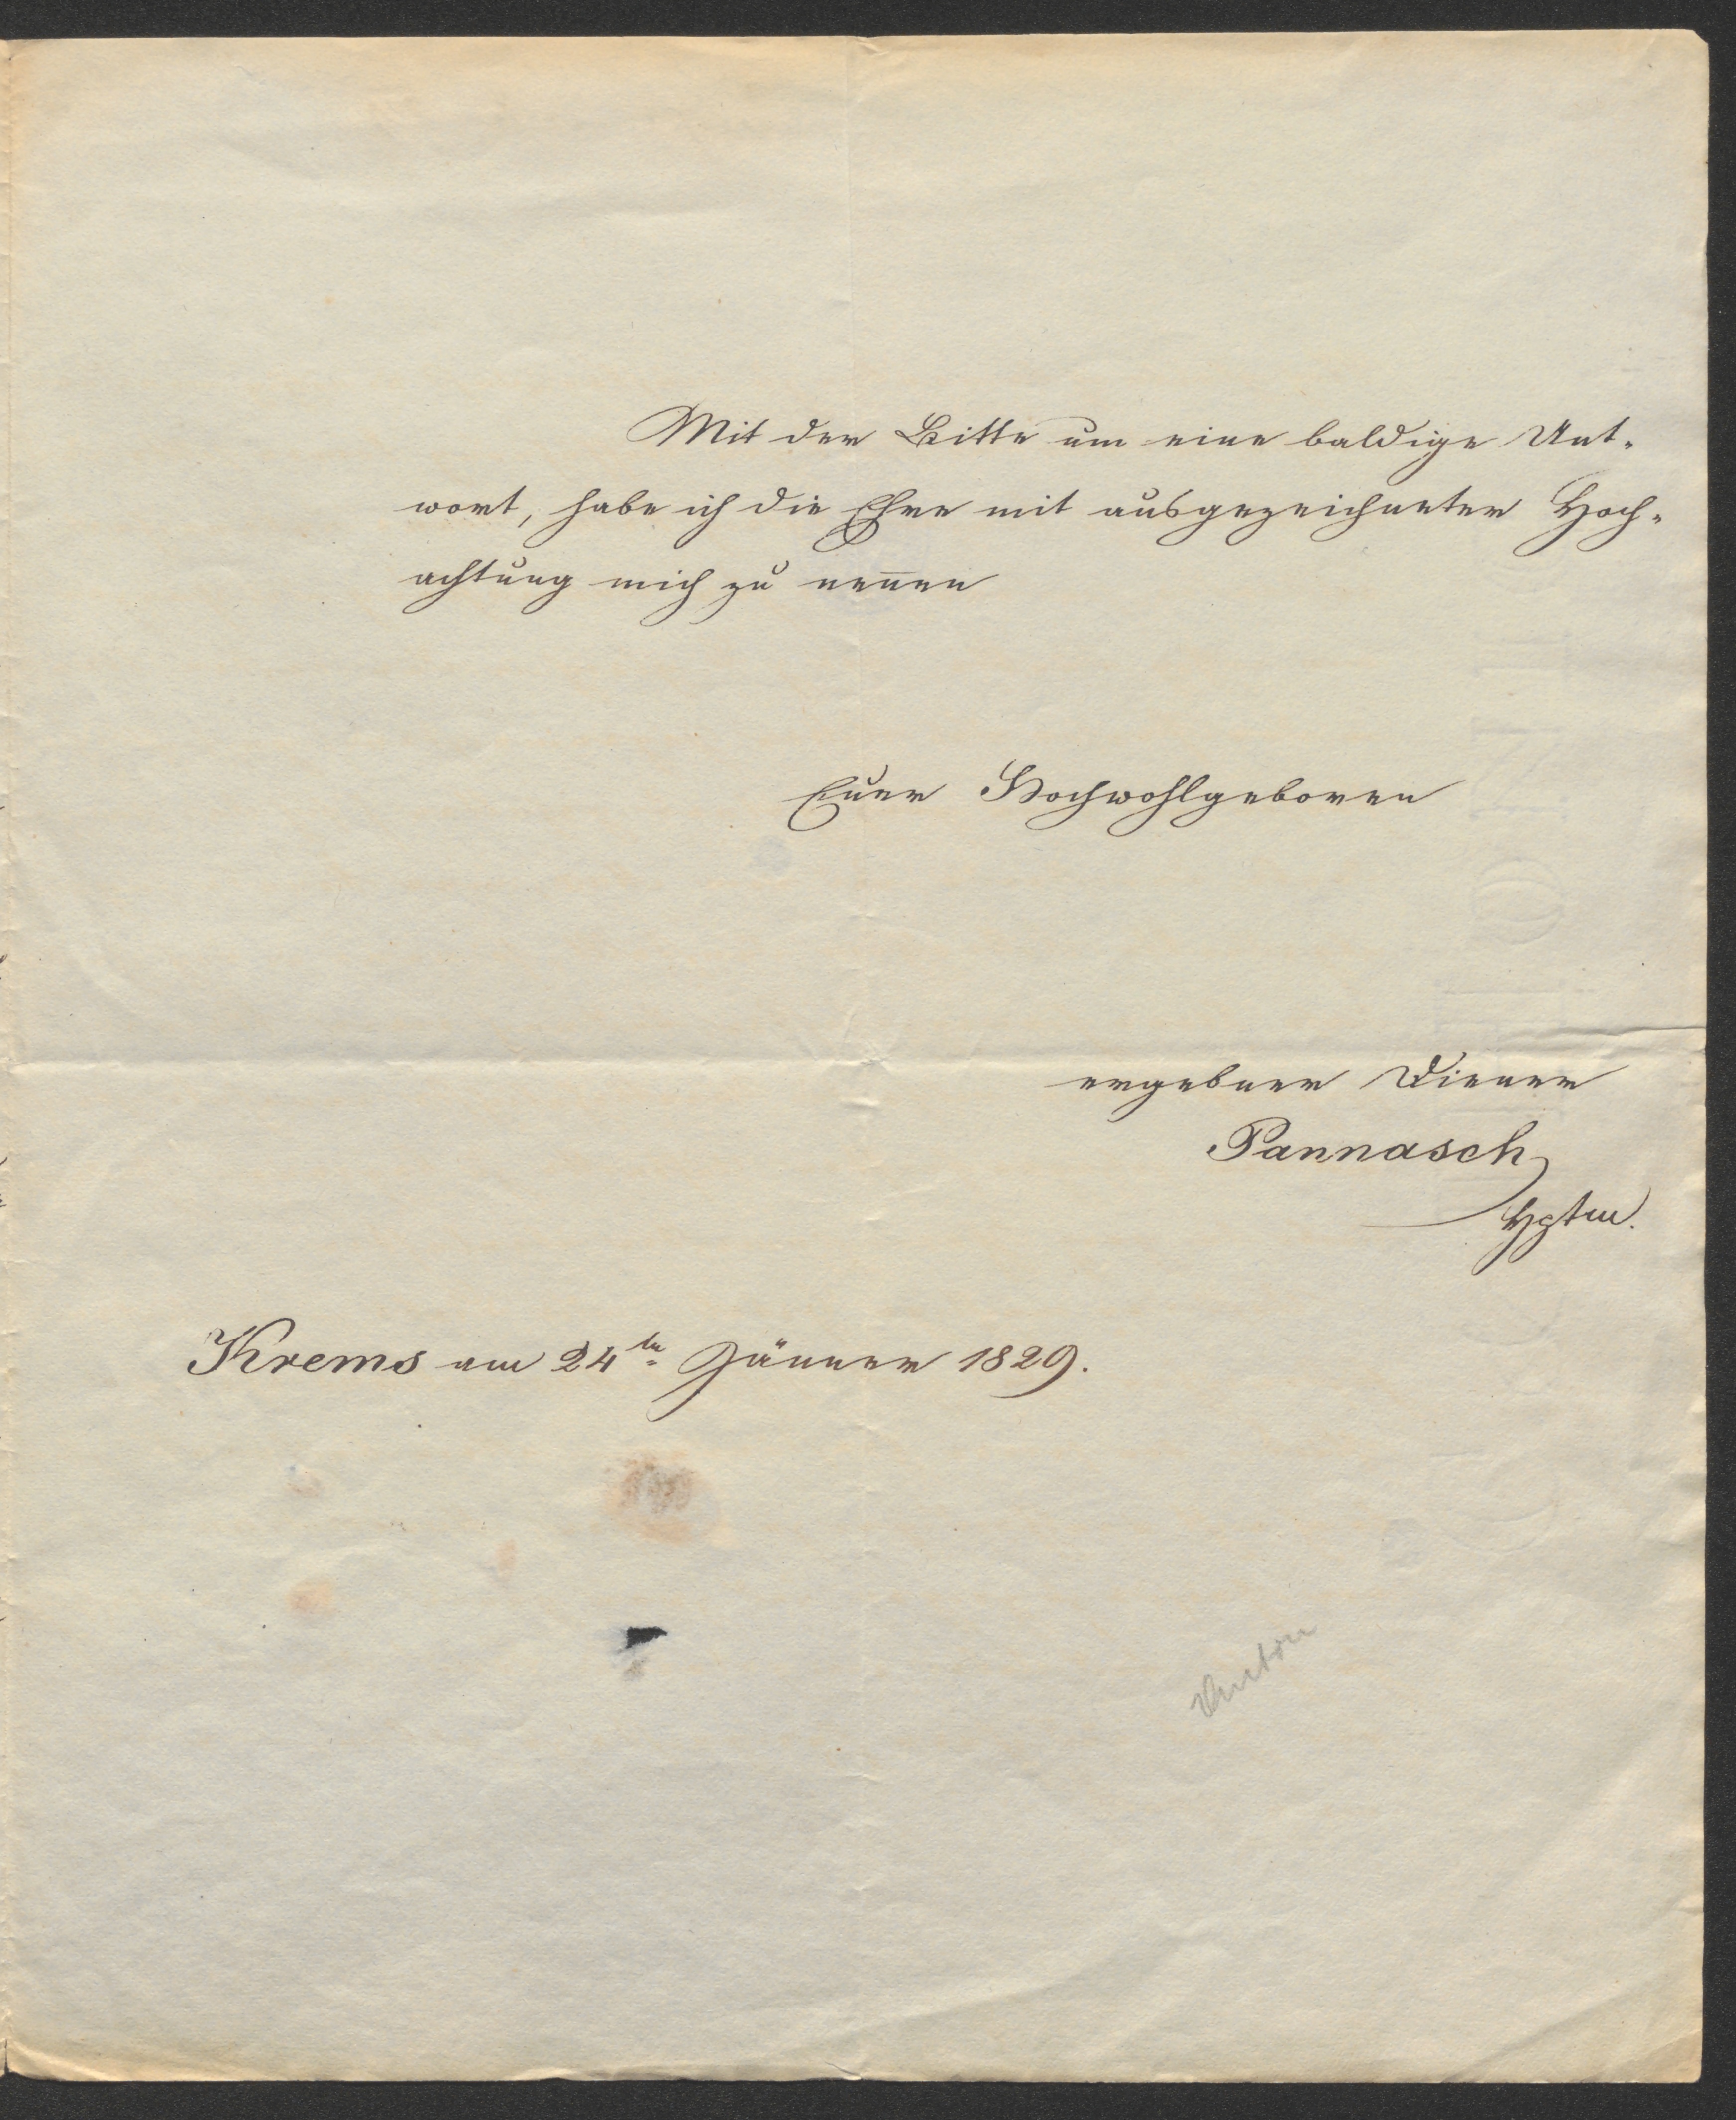 Mit der Bitte um eine baldige Ant-
wort, habe ich die Ehre mit ausgezeichneter Hoch-
achtung mich zu nen̅en
Euer Hochwohlgeboren
ergebner Diener
Pannasch
Hptm.
Krems am 24tn Jänner 1829.
Anton